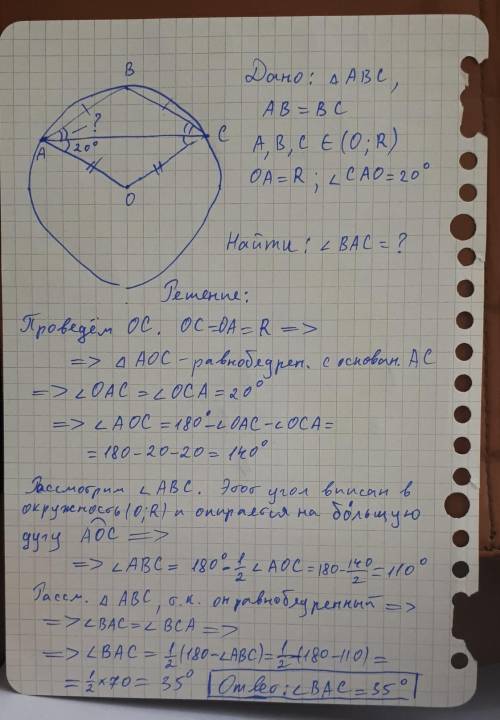 B
Дано: △ABC,
AB = BC
?
A
C
20°
A, B, C ∈ (O; R)
OA = R ; ∠CAO = 20°
O
Найти: ∠BAC = ?
Решение:
Проведём OC. OC=OA=R =>
=> △AOC - равнобедрен. с основан. AC
=> ∠OAC = ∠OCA = 20°
=> ∠AOC = 180° - ∠OAC - ∠OCA =
= 180 - 20 - 20 = 140°
Рассмотрим ∠ABC. Этот угол вписан в
окружность (O; R) и опирается на бо́льшую
дугу AOC =>
=> ∠ABC = 180° - 1/2 ∠AOC = 180 - 140/2 = 110°
Рассм. △ABC, т.к. он равнобедренный =>
=> ∠BAC = ∠BCA =>
=> ∠BAC = 1/2 (180 - ∠ABC) = 1/2 (180 - 110) =
= 1/2 × 70 = 35° Ответ: ∠BAC = 35°